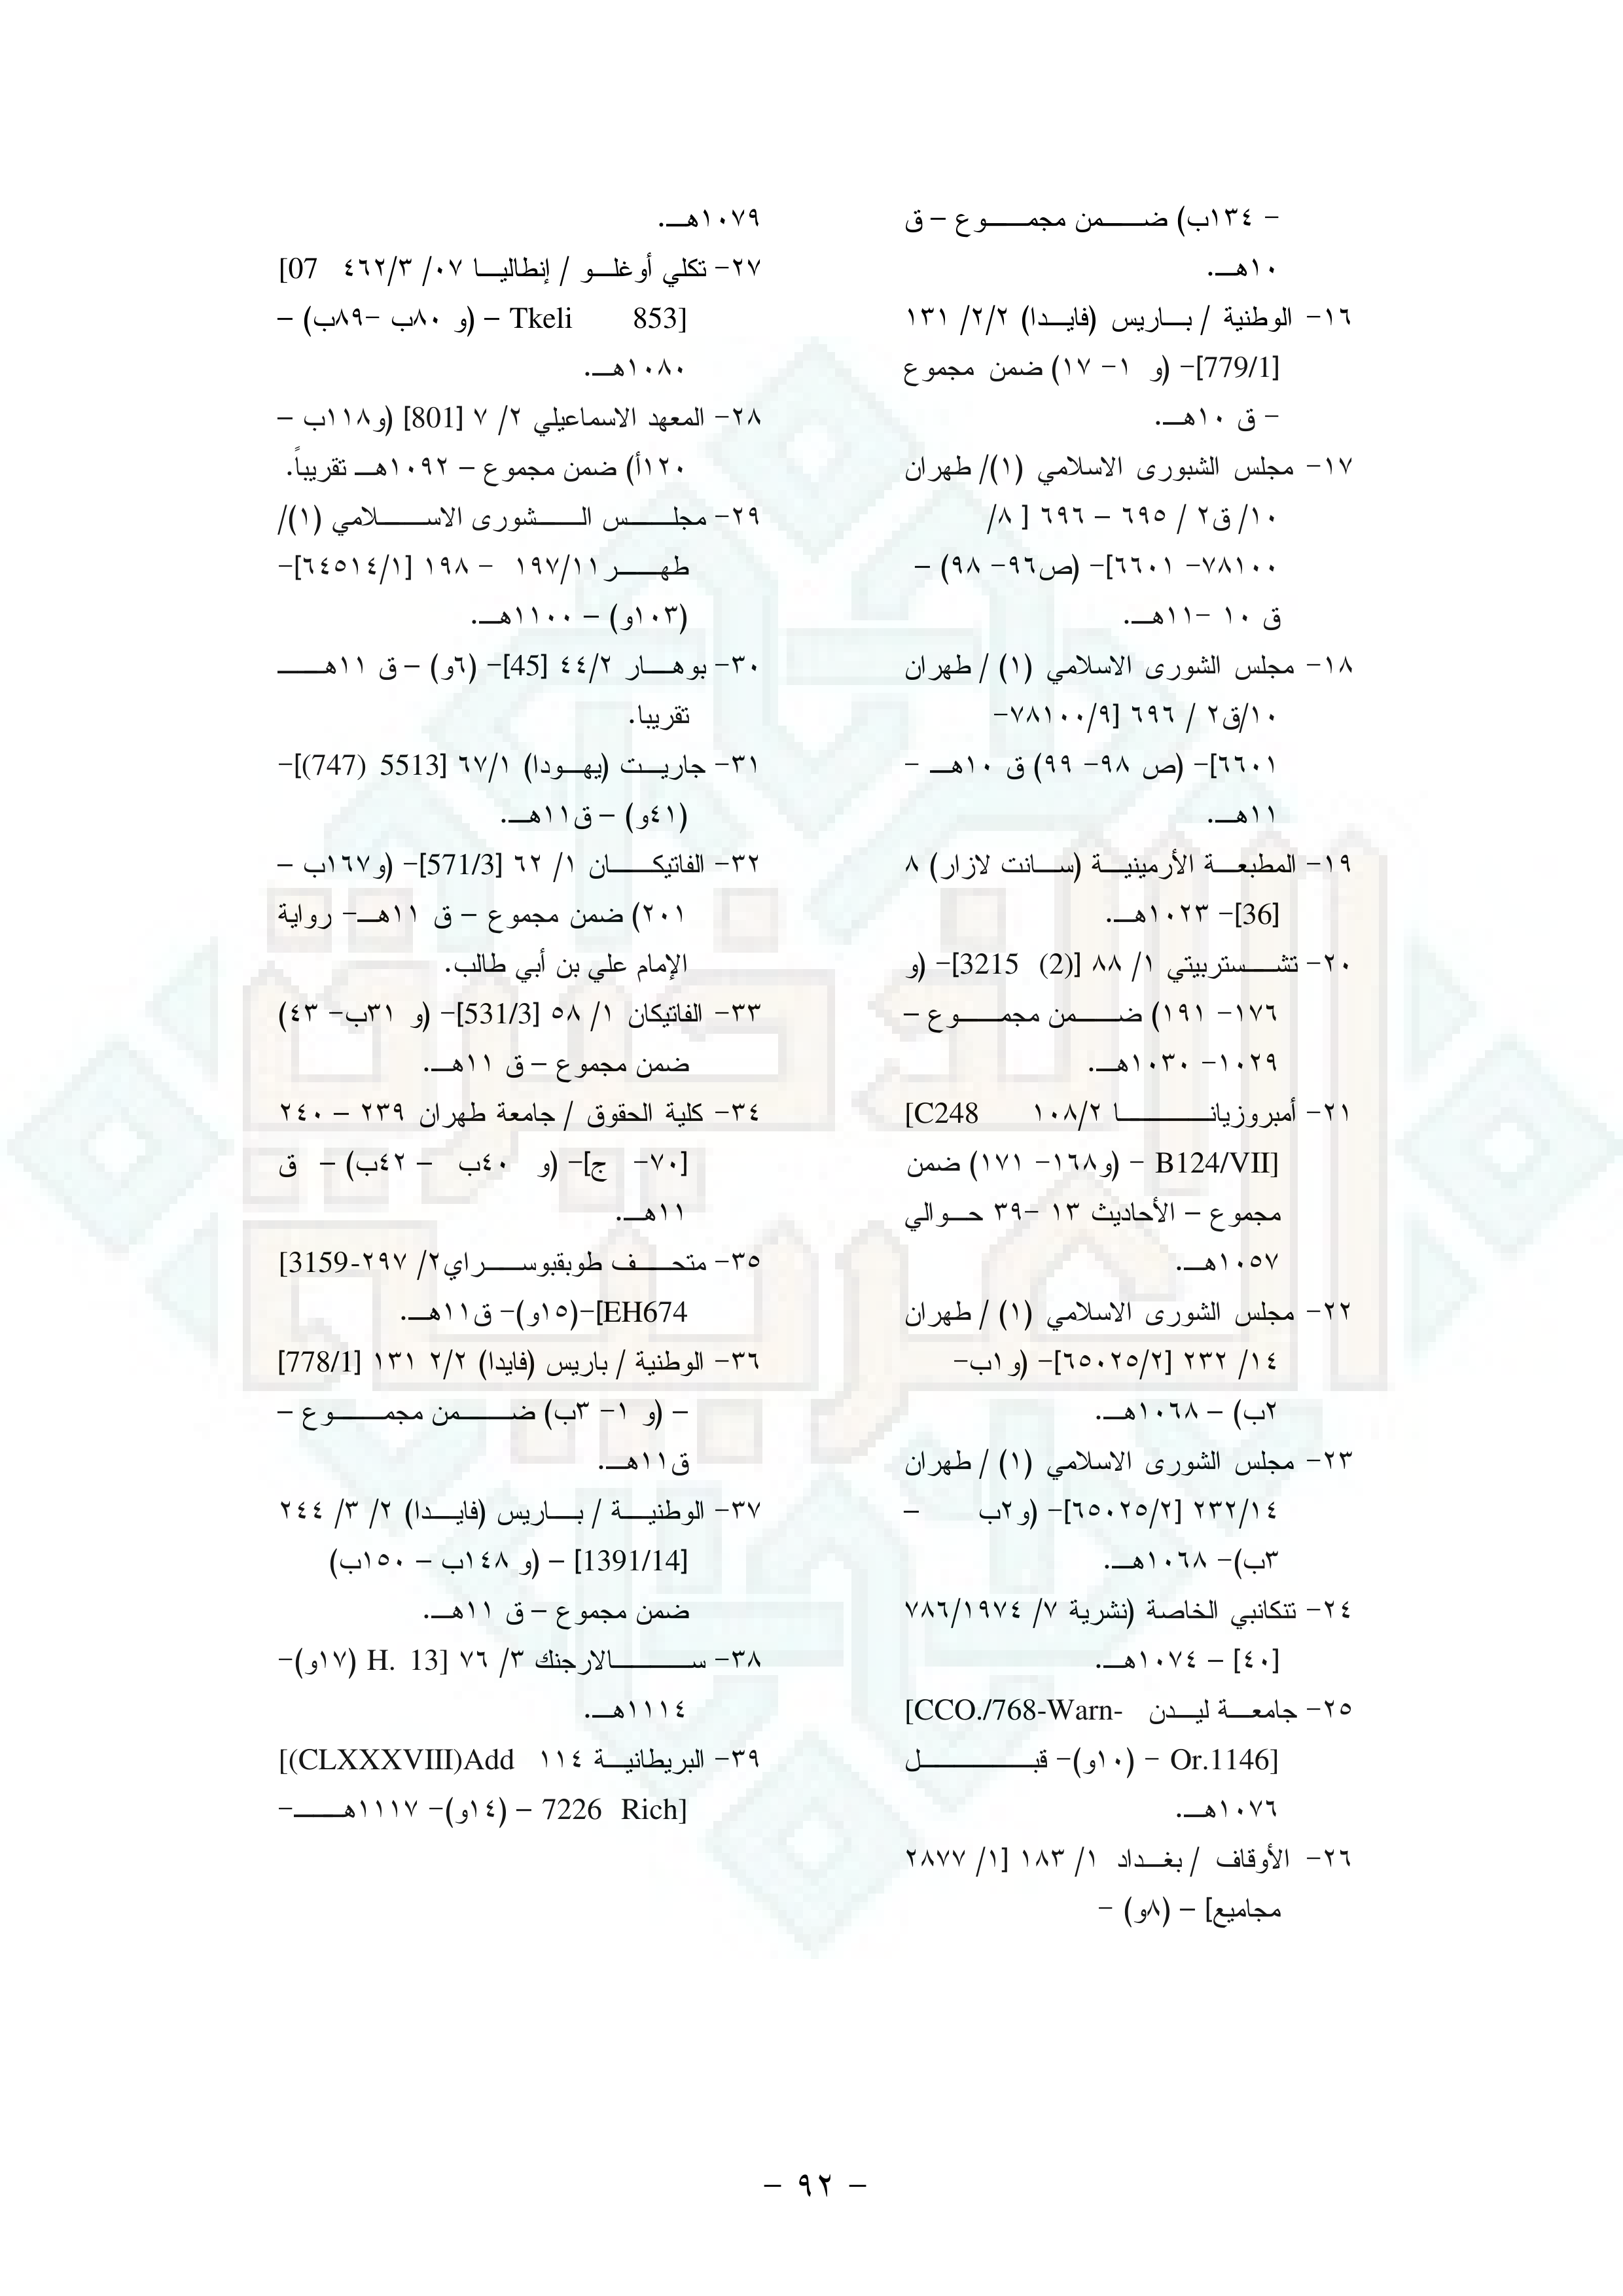 - ١٣٤ب) ضمن مجموع – ق
١٠هـ.
١٦- الوطنية / باريس (فايدا) ٢/٢/ ١٣١
[779/1]- (و ١- ١٧) ضمن مجموع
- ق ١٠هـ.
١٧- مجلس الشبورى الاسلامي (١)/ طهران
١٠/ ق٢ / ٦٩٥ – ٦٩٦ [ ٨/
٧٨١٠٠- ٦٦٠١]- (ص٩٦- ٩٨) –
ق ١٠ -١١هـ.
١٨- مجلس الشورى الاسلامي (١) / طهران
١٠/ق٢ / ٦٩٦ [٧٨١٠٠/٩-
٦٦٠١]- (ص ٩٨- ٩٩) ق ١٠هـ -
١١هـ.
١٩- المطبعة الأرمينية (سانت لازار) ٨
[36]- ١٠٢٣هـ.
٢٠- تشستربيتي ١/ ٨٨ [3215 (2)]- (و
١٧٦- ١٩١) ضمن مجموع –
١٠٢٩- ١٠٣٠هـ.
٢١- أمبروزيانا ١٠٨/٢ [C248
B124/VII] - (و١٦٨- ١٧١) ضمن
مجموع – الأحاديث ١٣ -٣٩ حوالي
١٠٥٧هـ.
٢٢- مجلس الشورى الاسلامي (١) / طهران
١٤/ ٢٣٢ [٦٥٠٢٥/٢]- (و١ب-
٢ب) – ١٠٦٨هـ.
٢٣- مجلس الشورى الاسلامي (١) / طهران
٢٣٢/١٤ [٦٥٠٢٥/٢]- (و٢ب –
٣ب)- ١٠٦٨هـ.
٢٤- تنكانبي الخاصة (نشرية ٧/ ٧٨٦/١٩٧٤
[٤٠] – ١٠٧٤هـ.
٢٥- جامعة ليدن [CCO./768-Warn-
Or.1146] - (١٠و)- قبل
١٠٧٦هـ.
٢٦- الأوقاف / بغداد ١/ ١٨٣ [١/ ٢٨٧٧
مجاميع] – (٨و) -
١٠٧٩هـ.
٢٧- تكلي أوغلو / إنطاليا ٠٧/ ٤٦٢/٣ [07
Tkeli 853] – (و ٨٠ب -٨٩ب) –
١٠٨٠هـ.
٢٨- المعهد الاسماعيلي ٢/ ٧ [801] (و١١٨ب –
١٢٠أ) ضمن مجموع – ١٠٩٢هـ تقريباً.
٢٩- مجلس الشورى الاسلامي (١)/
طهر١٩٧/١١ - ١٩٨ [٦٤٥١٤/١]-
(١٠٣و) – ١١٠٠هـ.
٣٠- بوهار ٤٤/٢ [45]- (٦و) – ق ١١هـ
تقريبا.
٣١- جاريت (يهودا) ٦٧/١ [5513 (747)]-
(٤١و) – ق١١هـ.
٣٢- الفاتيكان ١/ ٦٢ [571/3]- (و١٦٧ب –
٢٠١) ضمن مجموع – ق ١١هـ- رواية
الإمام علي بن أبي طالب.
٣٣- الفاتيكان ١/ ٥٨ [531/3]- (و ٣١ب- ٤٣)
ضمن مجموع – ق ١١هـ.
٣٤- كلية الحقوق / جامعة طهران ٢٣٩ – ٢٤٠
[٧٠- ج]- (و ٤٠ب – ٤٢ب) – ق
١١هـ.
٣٥- متحف طوبقبوسراي٢/ ٢٩٧-3159]
EH674]-(١٥و)- ق١١هـ.
٣٦- الوطنية / باريس (فايدا) ٢/٢ ١٣١ [778/1]
– (و ١- ٣ب) ضمن مجموع –
ق١١هـ.
٣٧- الوطنية / باريس (فايدا) ٢/ ٣/ ٢٤٤
[1391/14] – (و ١٤٨ب – ١٥٠ب)
ضمن مجموع – ق ١١هـ.
٣٨- سالارجنك ٣/ ٧٦ [H. 13 (١٧و)-
١١١٤هـ.
٣٩- البريطانية ١١٤ [(CLXXXVIII)Add
7226 Rich] – (١٤و)- ١١١٧هـ-
- ٩٢ -